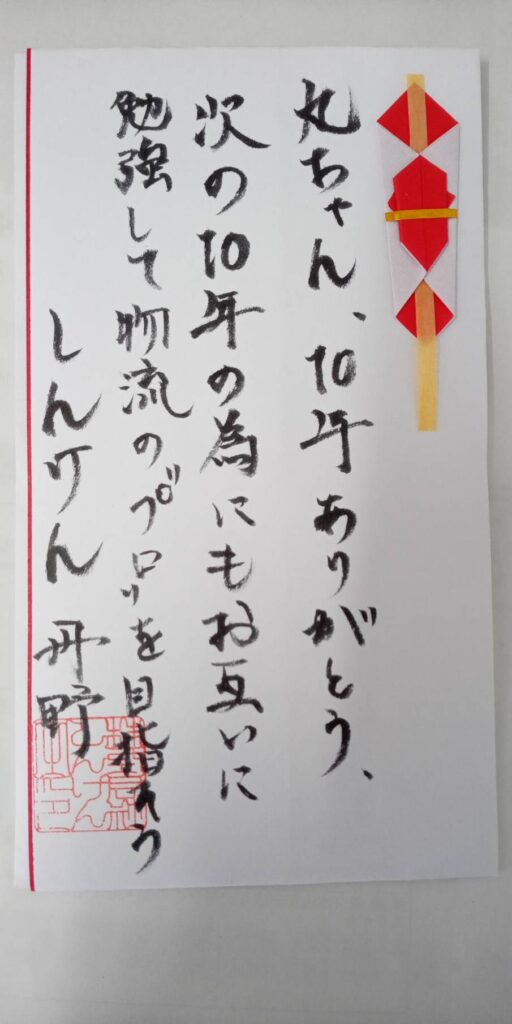 丸ちゃん、10年ありがとう、
次の10年の為にもお互いに
勉強して物流のプロを目指そう
しんけん 丹野